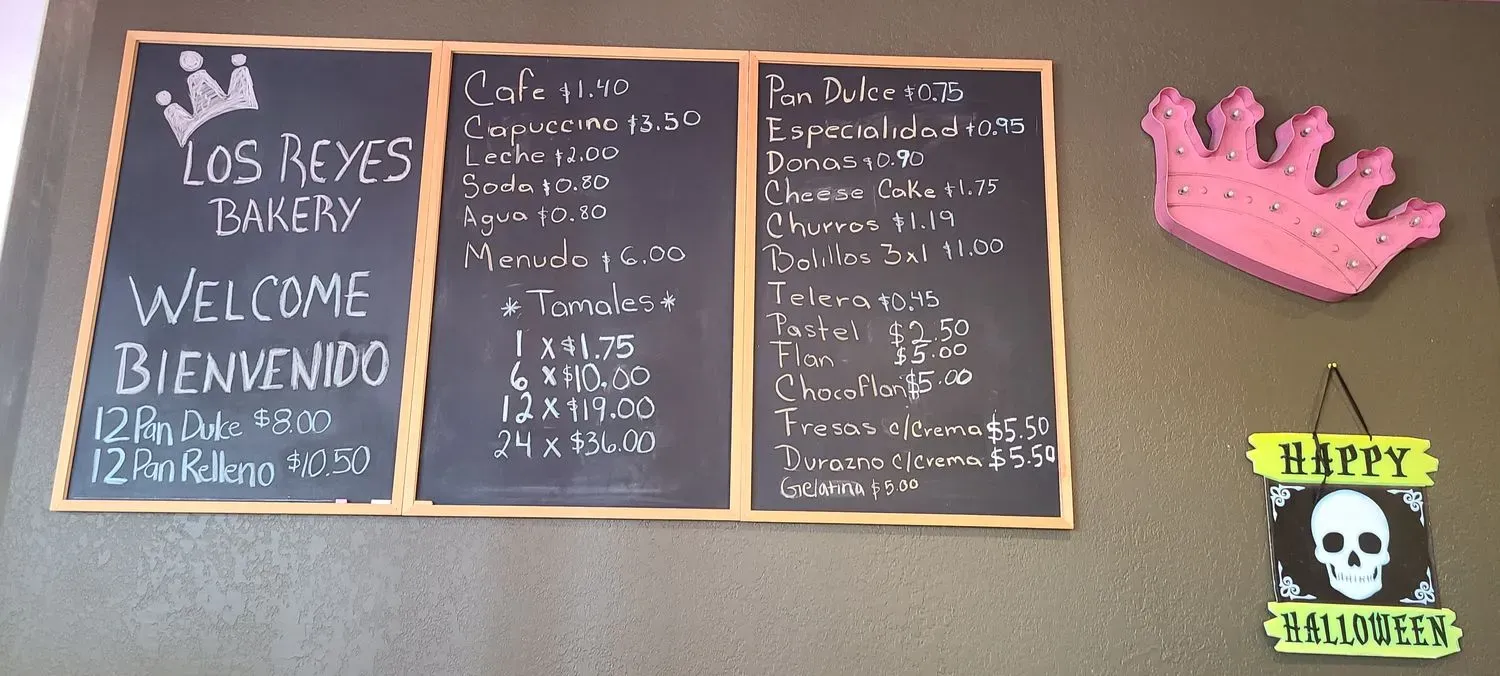 LOS REYES
BAKERY
WELCOME
BIENVENIDO
12 Pan Dulce $8.00
12 Pan Relleno $10.50
Cafe $1.40
Capuccino $3.50
Leche $2.00
Soda $0.80
Agua $0.80
Menudo $6.00
*Tamales*
1 x $1.75
6 x $10.00
12 x $19.00
24 x $36.00
Pan Dulce $0.75
Especialidad $0.95
Donas $0.90
Cheese Cake $1.75
Churros $1.19
Bolillos 3x1 $1.00
Telera $0.45
Pastel $2.50
Flan $5.00
Chocoflan $5.00
Fresas c/crema $5.50
Durazno c/crema $5.50
Gelatina $5.00
HAPPY
HALLOWEEN